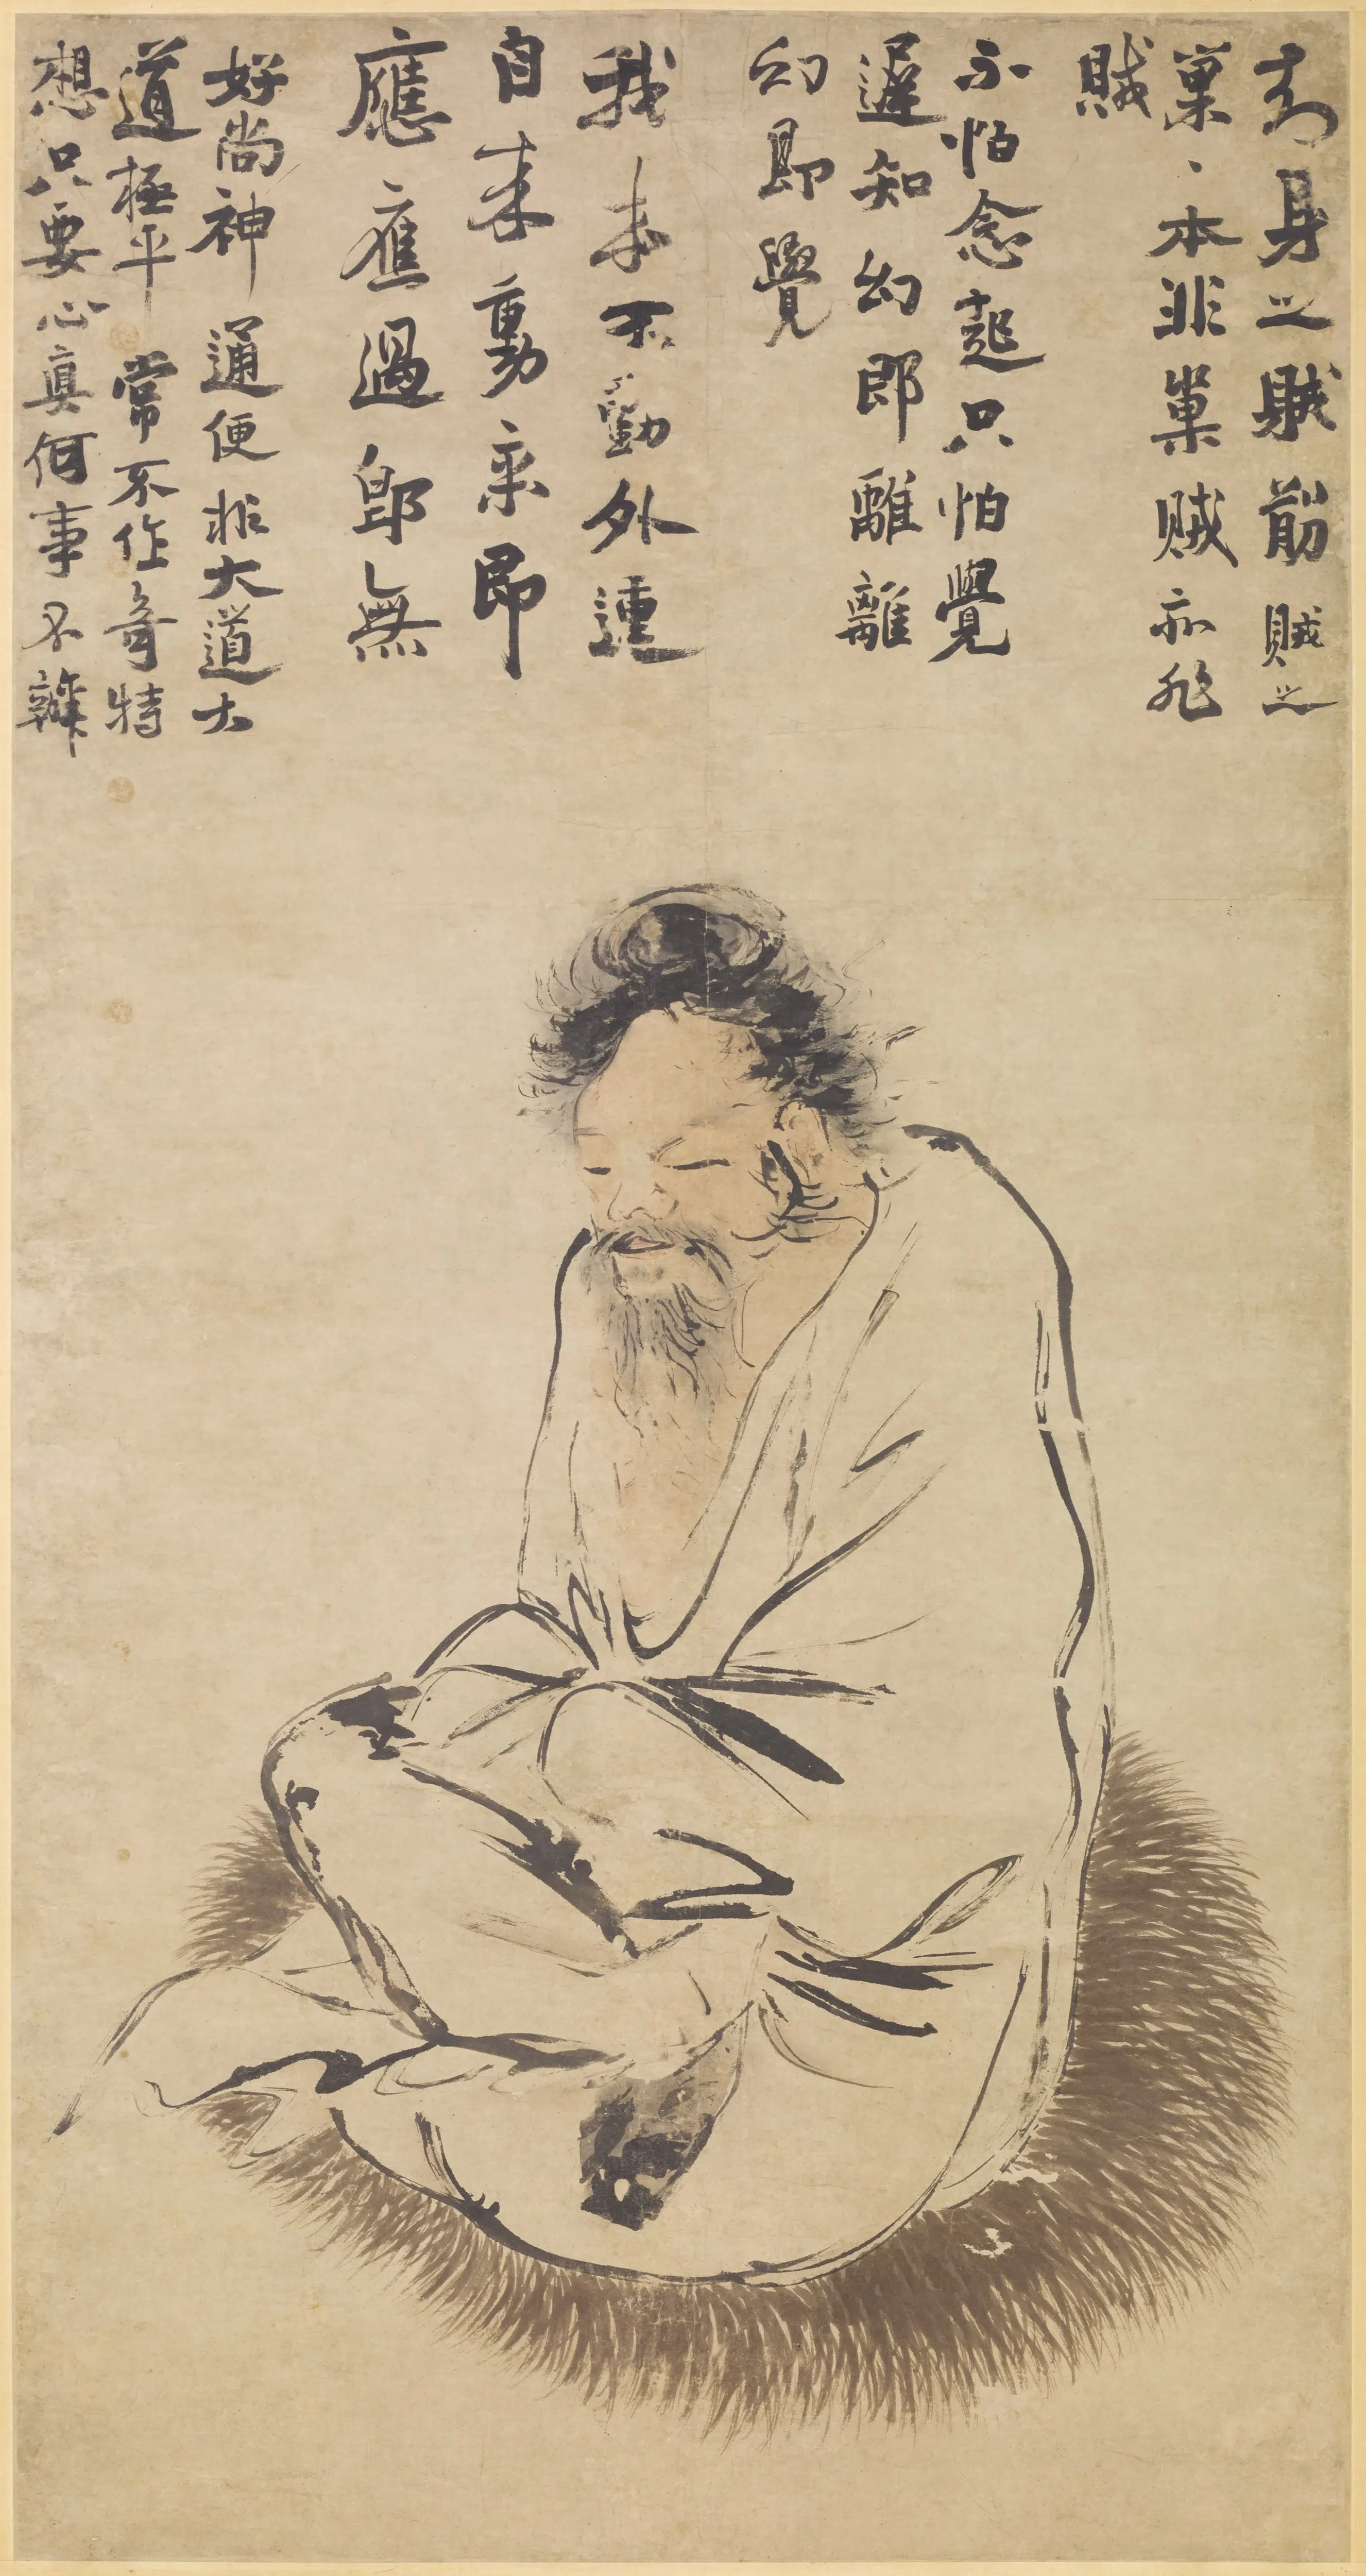 有身之賊窟賊之
巢〻本非巢賊亦非
賊
不怕念起只怕覺
遲知幻即離離
幻即覺
我未不動外運
自來動來即
應應過即無
好尚神通便非大道大
道極平常不作奇特
想只要心真何事不辦